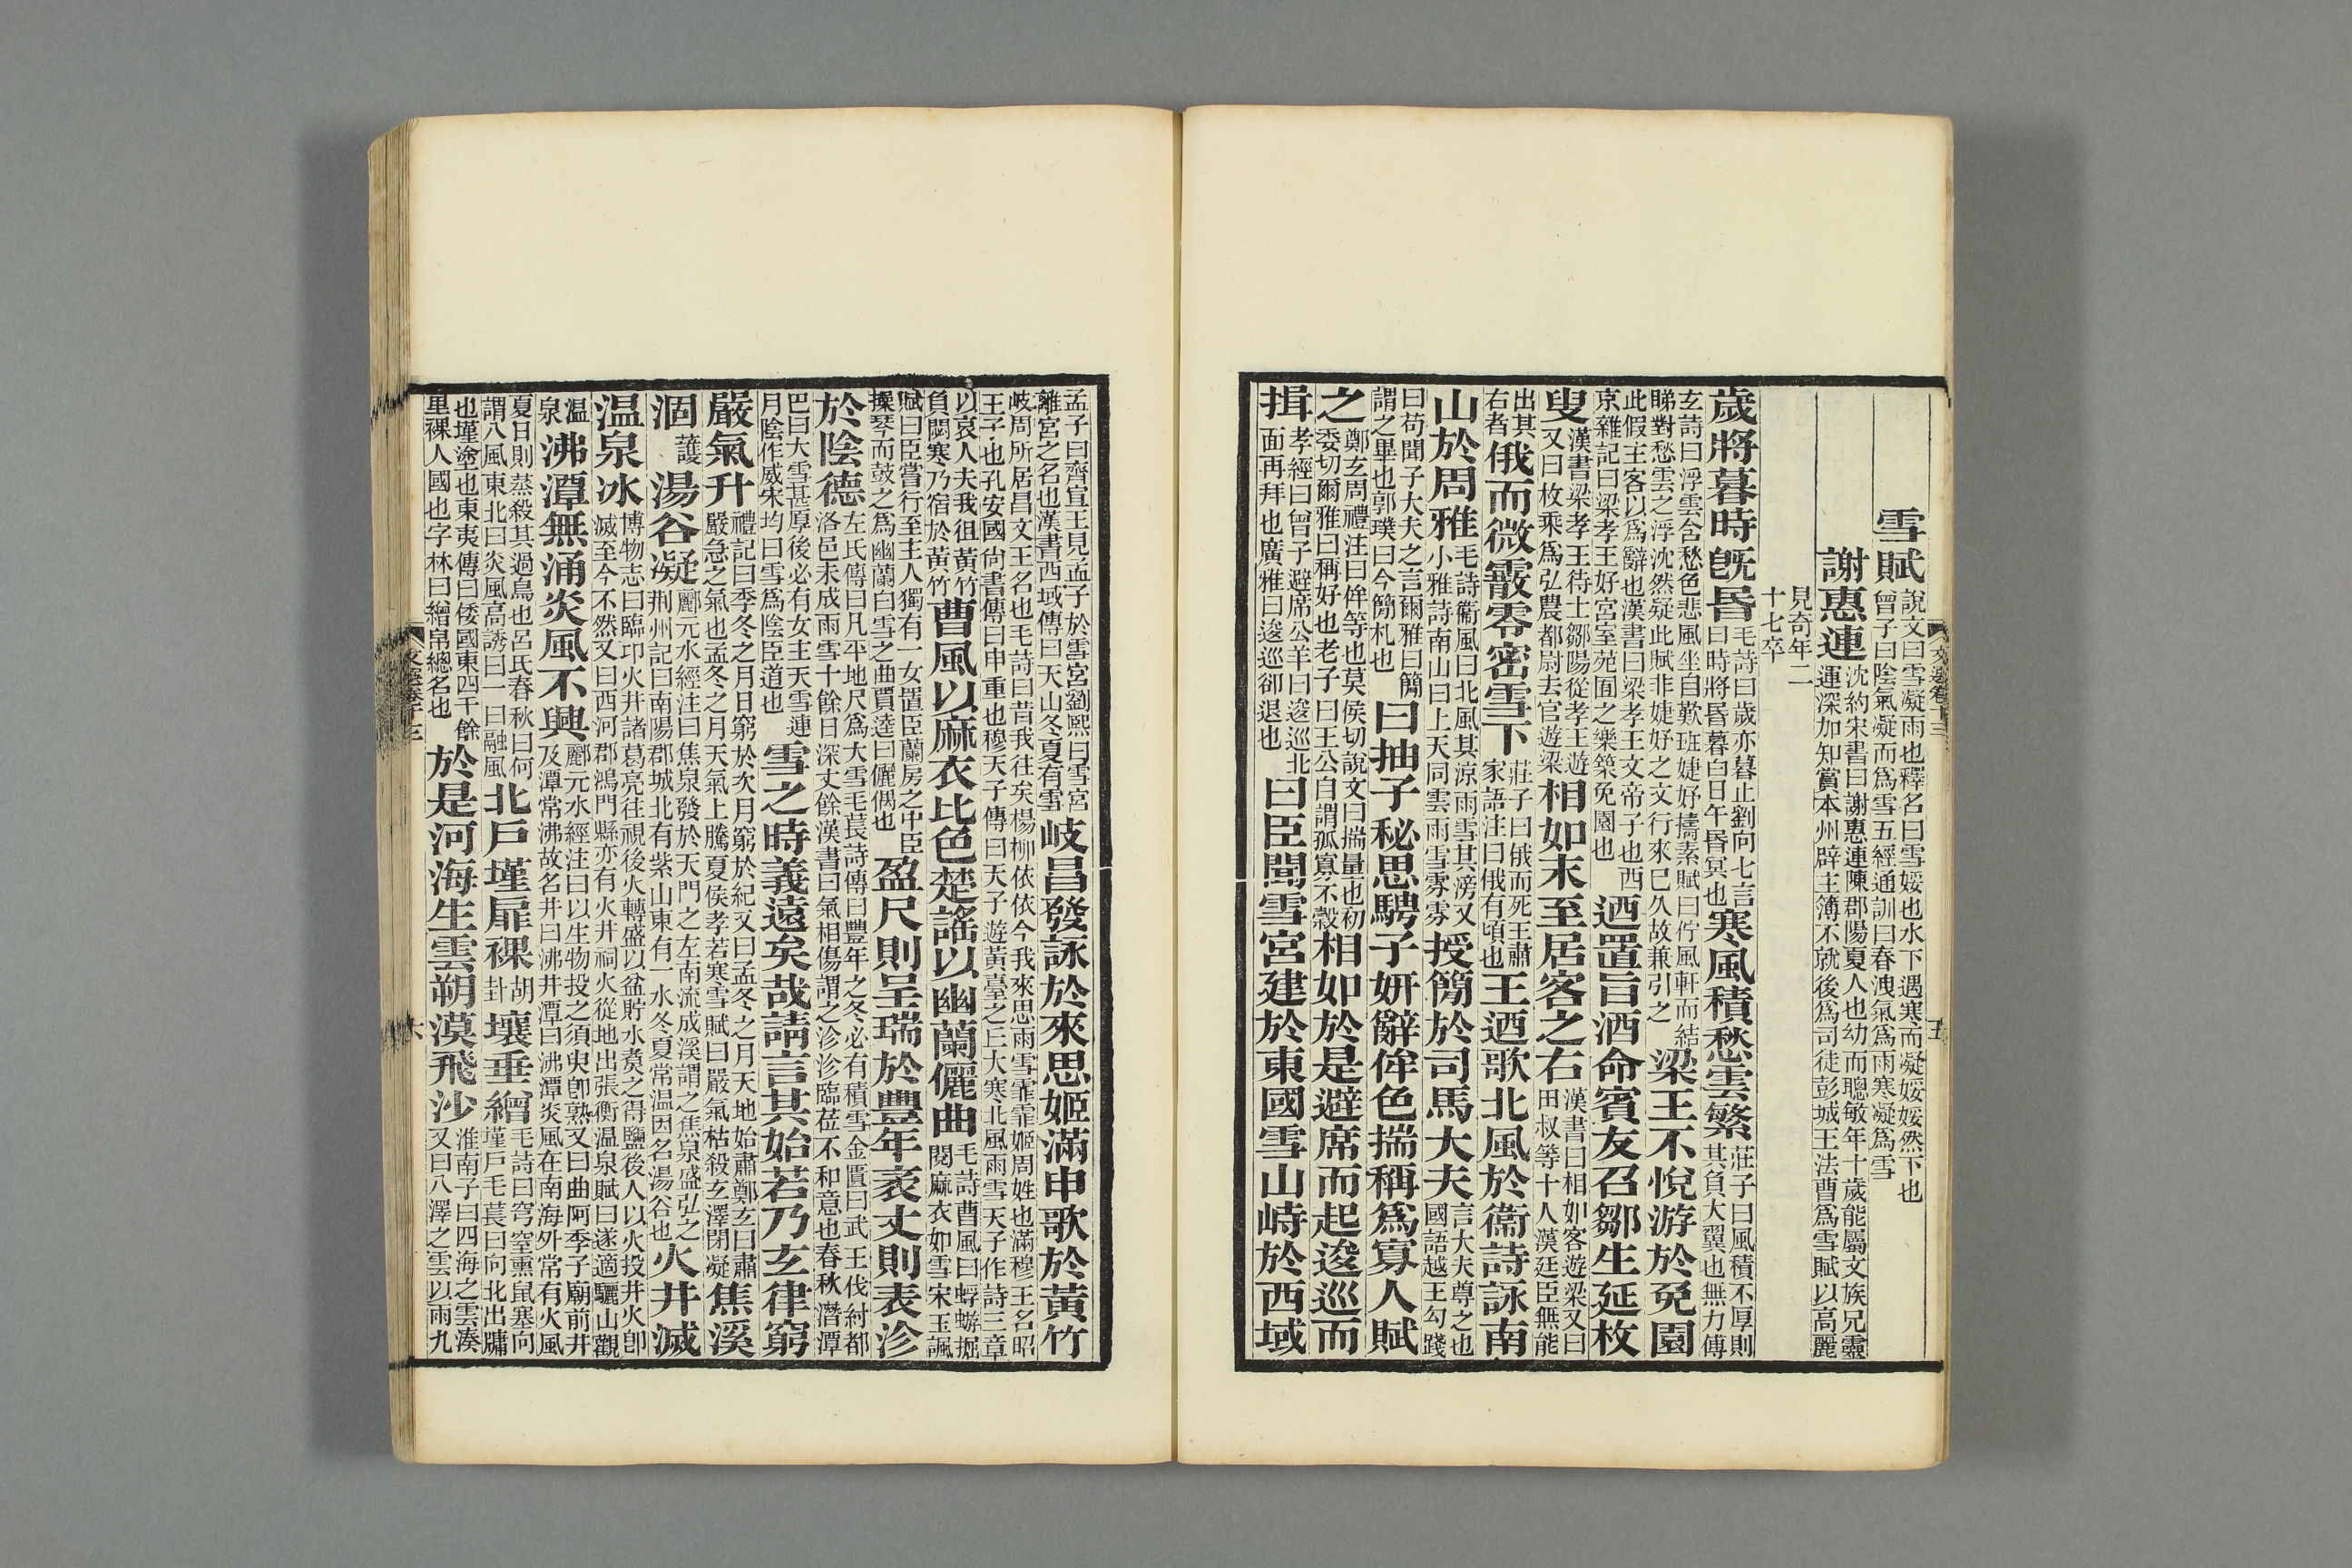 文選卷十三　五
雪賦說文曰雪凝雨也釋名曰雪綏也水下遇寒而凝綏綏然下也曾子曰陰氣凝而爲雪五經通訓曰春洩氣爲雨寒凝爲雪
謝惠連沈約宋書曰謝惠連陳郡陽夏人也幼而聰敏年十歲能屬文族兄靈運深加知賞本州辟主簿不就後爲司徒彭城王法曹爲雪賦以高麗
見奇年二十七卒
歲將暮時旣昏毛詩曰歲亦暮止劉向七言曰時將昏暮白日午昏冥也寒風積愁雲繁莊子曰風積不厚則其負大翼也無力傅
玄詩曰浮雲含愁色悲風坐自歎班婕妤擣素賦曰佇風軒而結睇對愁雲之浮沈然疑此賦非婕妤之文行來已久故兼引之梁王不悅游於兔園
此假主客以爲辭也漢書曰梁孝王文帝子也西京雜記曰梁孝王好宮室苑囿之樂築兔園也迺置旨酒命賓友召鄒生延枚
叟漢書梁孝王待士鄒陽從孝王遊又曰枚乘爲弘農都尉去官遊梁相如末至居客之右漢書曰相如客遊梁又曰田叔等十人漢廷臣無能
出其右者俄而微霰零密雪下莊子曰俄而死王肅家語注曰俄有頃也王迺歌北風於衞詩詠南
山於周雅毛詩衞風曰北風其涼雨雪其滂又小雅詩南山曰上天同雲雨雪雰雰授簡於司馬大夫言大夫尊之也國語越王勾踐
曰苟聞子大夫之言爾雅曰簡謂之畢也郭璞曰今簡札也曰抽子秘思騁子妍辭侔色揣稱爲寡人賦
之鄭玄周禮注曰侔等也莫侯切說文曰揣量也初委切爾雅曰稱好也老子曰王公自謂孤寡不穀相如於是避席而起逡巡而
揖孝經曰曾子避席公羊曰逡巡北面再拜也廣雅曰逡巡卻退也曰臣聞雪宮建於東國雪山峙於西域
孟子曰齊宣王見孟子於雪宮劉熙曰雪宮離宮之名也漢書西域傳曰天山冬夏有雪岐昌發詠於來思姬滿申歌於黃竹
岐周所居昌文王名也毛詩曰昔我往矣楊柳依依今我來思雨雪霏霏姬周姓也滿穆王名昭王子也孔安國尚書傳曰申重也穆天子傳曰天子遊黃臺之丘大寒北風雨雪天子作詩三章
以哀人夫我徂黃竹負閟寒乃宿於黃竹曹風以麻衣比色楚謠以幽蘭儷曲毛詩曹風曰蜉蝣掘閱麻衣如雪宋玉諷
賦曰臣嘗行至主人獨有一女置臣蘭房之中臣操琴而鼓之爲幽蘭白雪之曲賈逵曰儷偶也盈尺則呈瑞於豐年袤丈則表沴
於陰德左氏傳曰凡平地尺爲大雪毛萇詩傳曰豐年之冬必有積雪金匱曰武王伐紂都洛邑未成雨雪十餘日深丈餘漢書曰氣相傷謂之沴沴臨莅不和意也春秋潛潭
巴曰大雪甚厚後必有女主天雪連月陰作威宋均曰雪爲陰臣道也雪之時義遠矣哉請言其始若乃玄律窮
嚴氣升禮記曰季冬之月日窮於次月窮於紀又曰孟冬之月天地始肅鄭玄曰肅嚴急之氣也孟冬之月天氣上騰夏侯孝若寒雪賦曰嚴氣枯殺玄澤閉凝焦溪
涸護湯谷凝酈元水經注曰焦泉發於天門之左南流成溪謂之焦泉盛弘之荊州記曰南陽郡城北有紫山東有一水冬夏常温因名湯谷也火井滅
温泉冰博物志曰臨邛火井諸葛亮往視後火轉盛以盆貯水煑之得鹽後人以火投井火卽滅至今不然又曰西河郡鴻門縣亦有火井祠火從地出張衡温泉賦曰遂適驪山觀
温泉沸潭無涌炎風不興酈元水經注曰以生物投之須臾卽熟又曰曲阿季子廟前井及潭常沸故名井曰沸井潭曰沸潭炎風在南海外常有火風
夏日則蒸殺其過鳥也呂氏春秋曰何謂八風東北曰炎風高誘曰一曰融風北戶墐扉裸胡卦壤垂繒毛詩曰穹窒熏鼠塞向墐戶毛萇曰向北出牖
也墐塗也東夷傳曰倭國東四千餘里裸人國也字林曰繒帛總名也於是河海生雲朔漠飛沙淮南子曰四海之雲湊又曰八澤之雲以雨九
文選卷十三　六